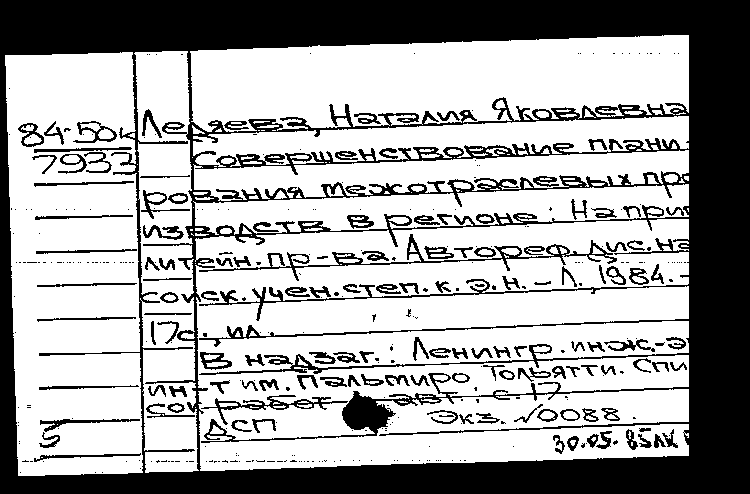 84-50к Ледяева, Наталия Яковлевна
7933 Совершенствование плани-
рования межотраслевых про
изводств в регионе: На прим
литейн. пр-ва. Автореф. дис. на
соиск. учен. степ. к. э. н. – Л., 1984. –
17с., ил.
В надзаг.: Ленингр. инж.-э
ин-т им. Пальмиро Тольятти. Спи
сок работ авт.: с. 17.
5 ДСП Экз. √0088.
30.05.85ЛК